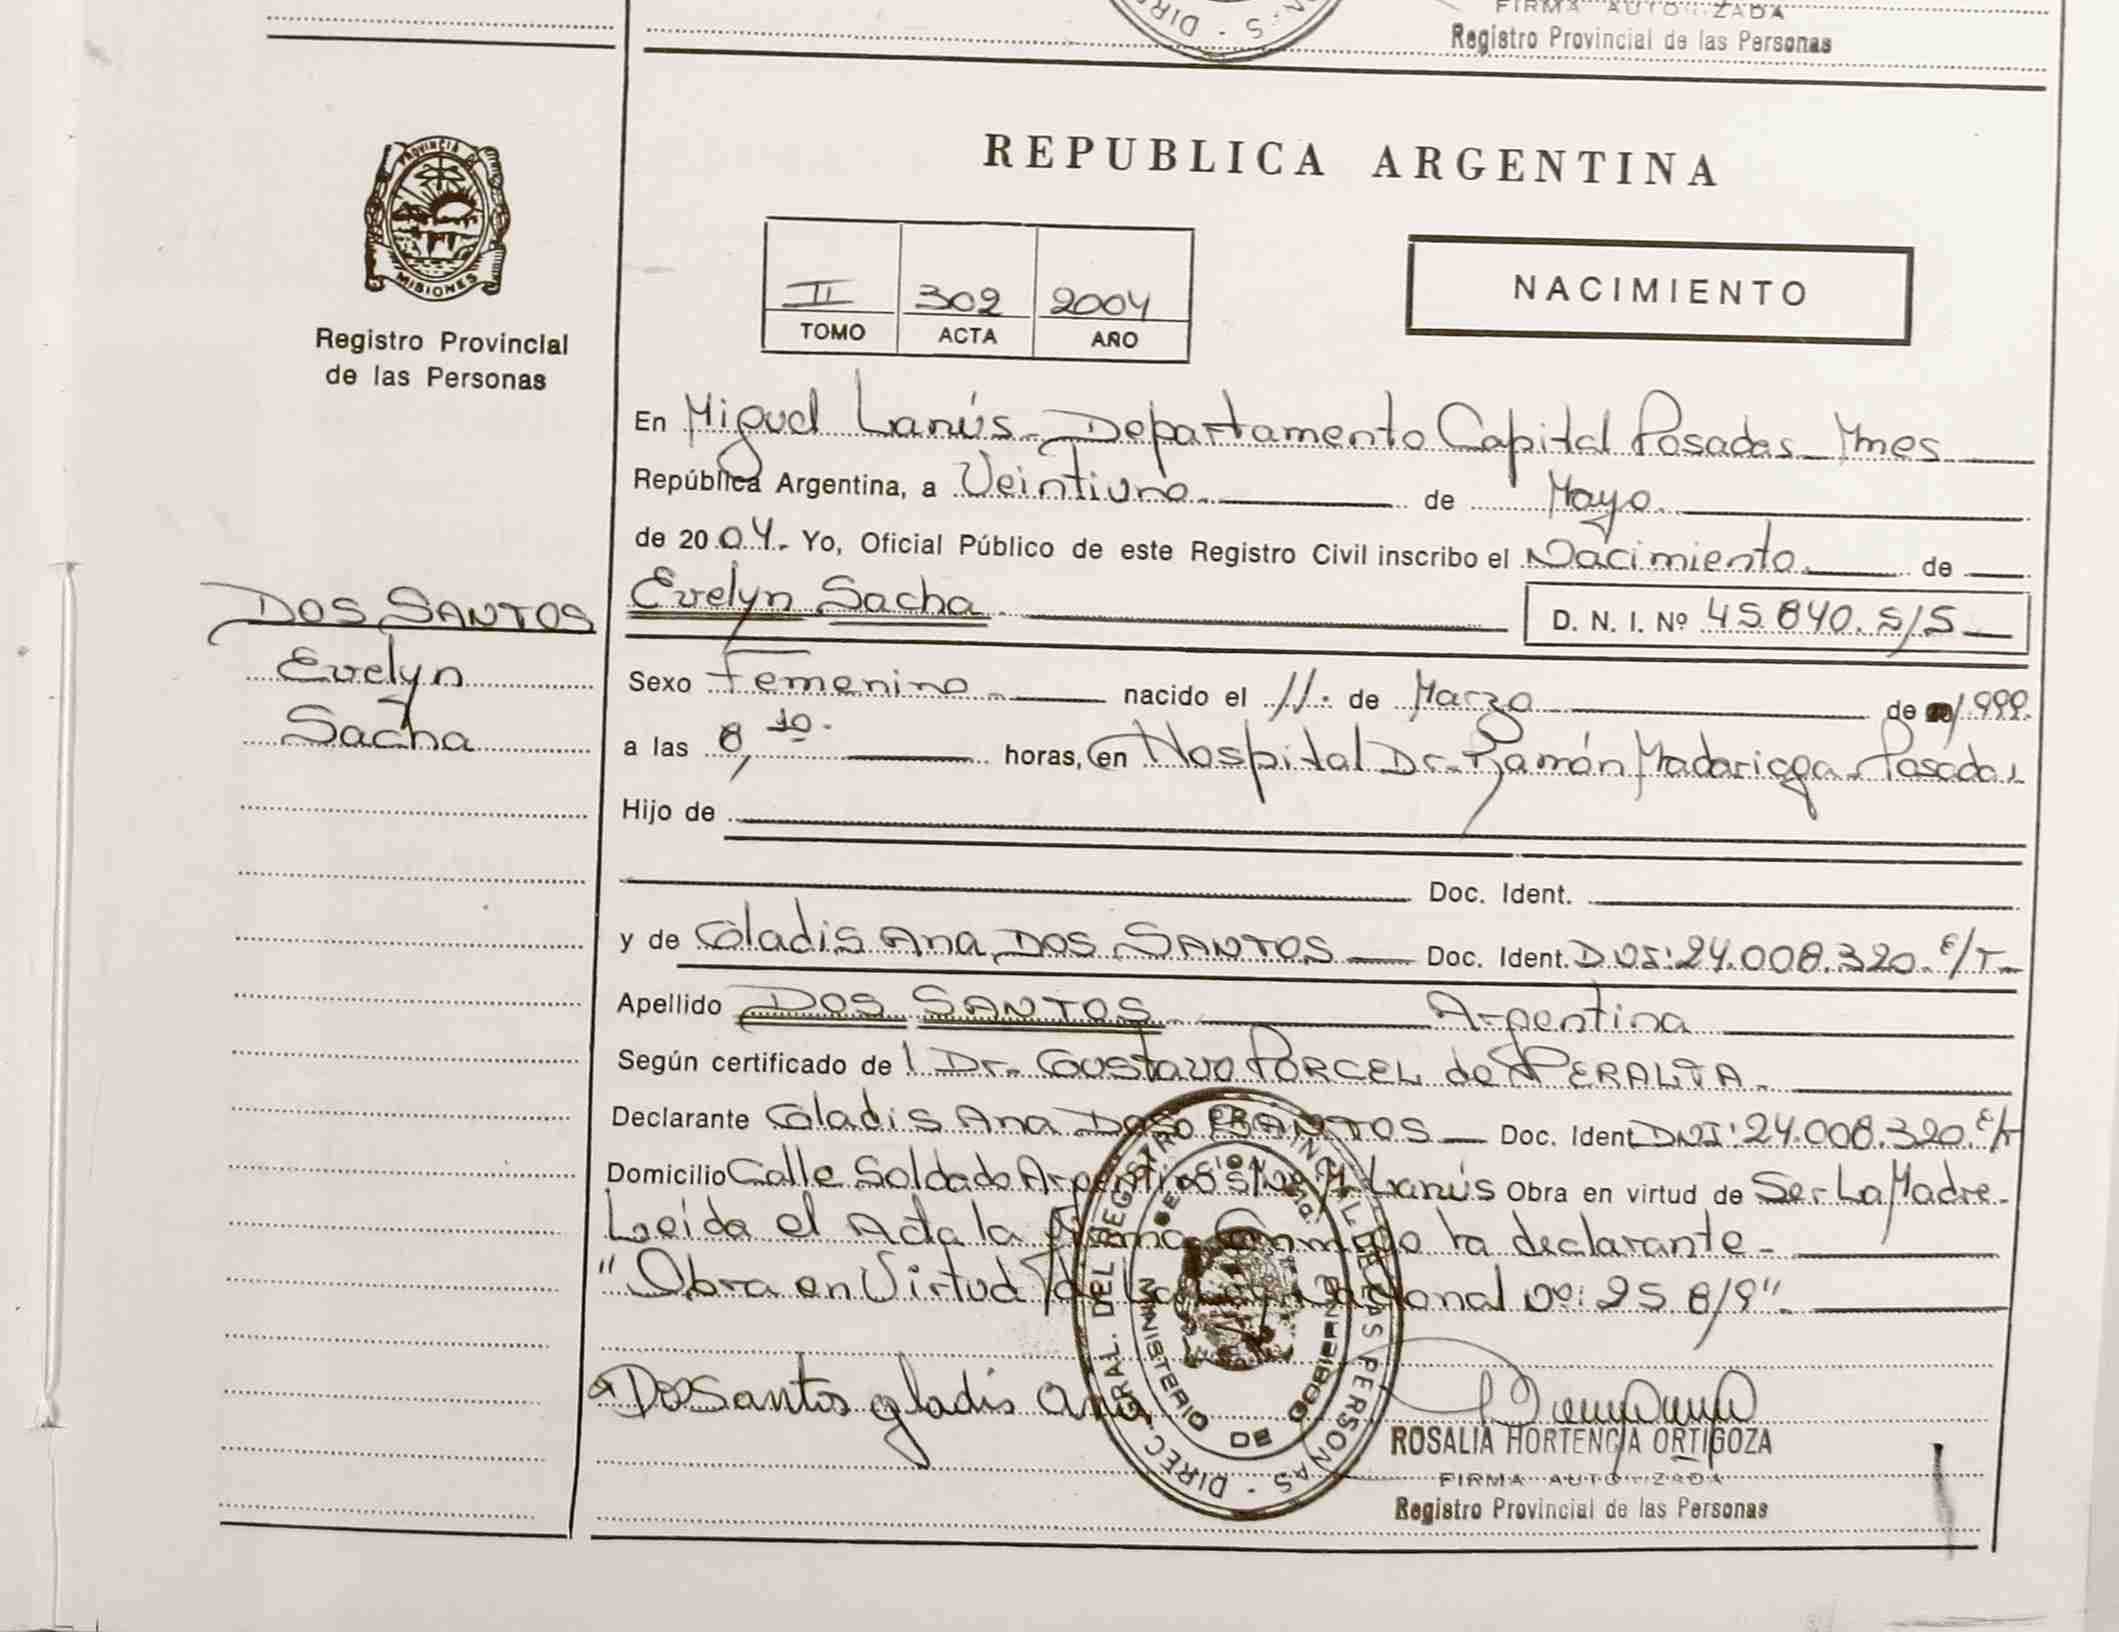 FIRMA AUTORIZADA
Registro Provincial de las Personas
PROVINCIA DE
MISIONES
Registro Provincial
de las Personas
REPUBLICA ARGENTINA
II 302 2004
TOMO ACTA AÑO
NACIMIENTO
En Miguel Lanús - Departamento Capital Posadas - Mnes
República Argentina, a Veintiuno de Mayo
de 2004. Yo, Oficial Público de este Registro Civil inscribo el Nacimiento de
DOS SANTOS
Evelyn
Sacha
Evelyn Sacha D. N. I. Nº 45.840.515
Sexo Femenino nacido el 11 de Marzo de 1999.
a las 8,10 horas, en Hospital Dr. Ramón Madariaga - Posadas
Hijo de
Doc. Ident.
y de Gladis Ana DOS SANTOS Doc. Ident. DNI: 24.008.320. E/T
Apellido DOS SANTOS Argentina
Según certificado de l Dr. Gustavo PORCEL de PERALTA.
Declarante Gladis Ana DOS SANTOS Doc. Ident DNI: 24.008.320 E/T
Domicilio Calle Soldado Lanús Obra en virtud de Ser La Madre.
Leída el Acta la declarante
"Obra en Virtud de La Ley Nacional Nº: 25 819"
Dos Santos gladis Ana
DIREC. GRAL. DEL REGISTRO PROVINCIAL DE LAS PERSONAS
MINISTERIO DE GOBIERNO
ROSALIA HORTENCIA ORTIGOZA
FIRMA AUTORIZADA
Registro Provincial de las Personas